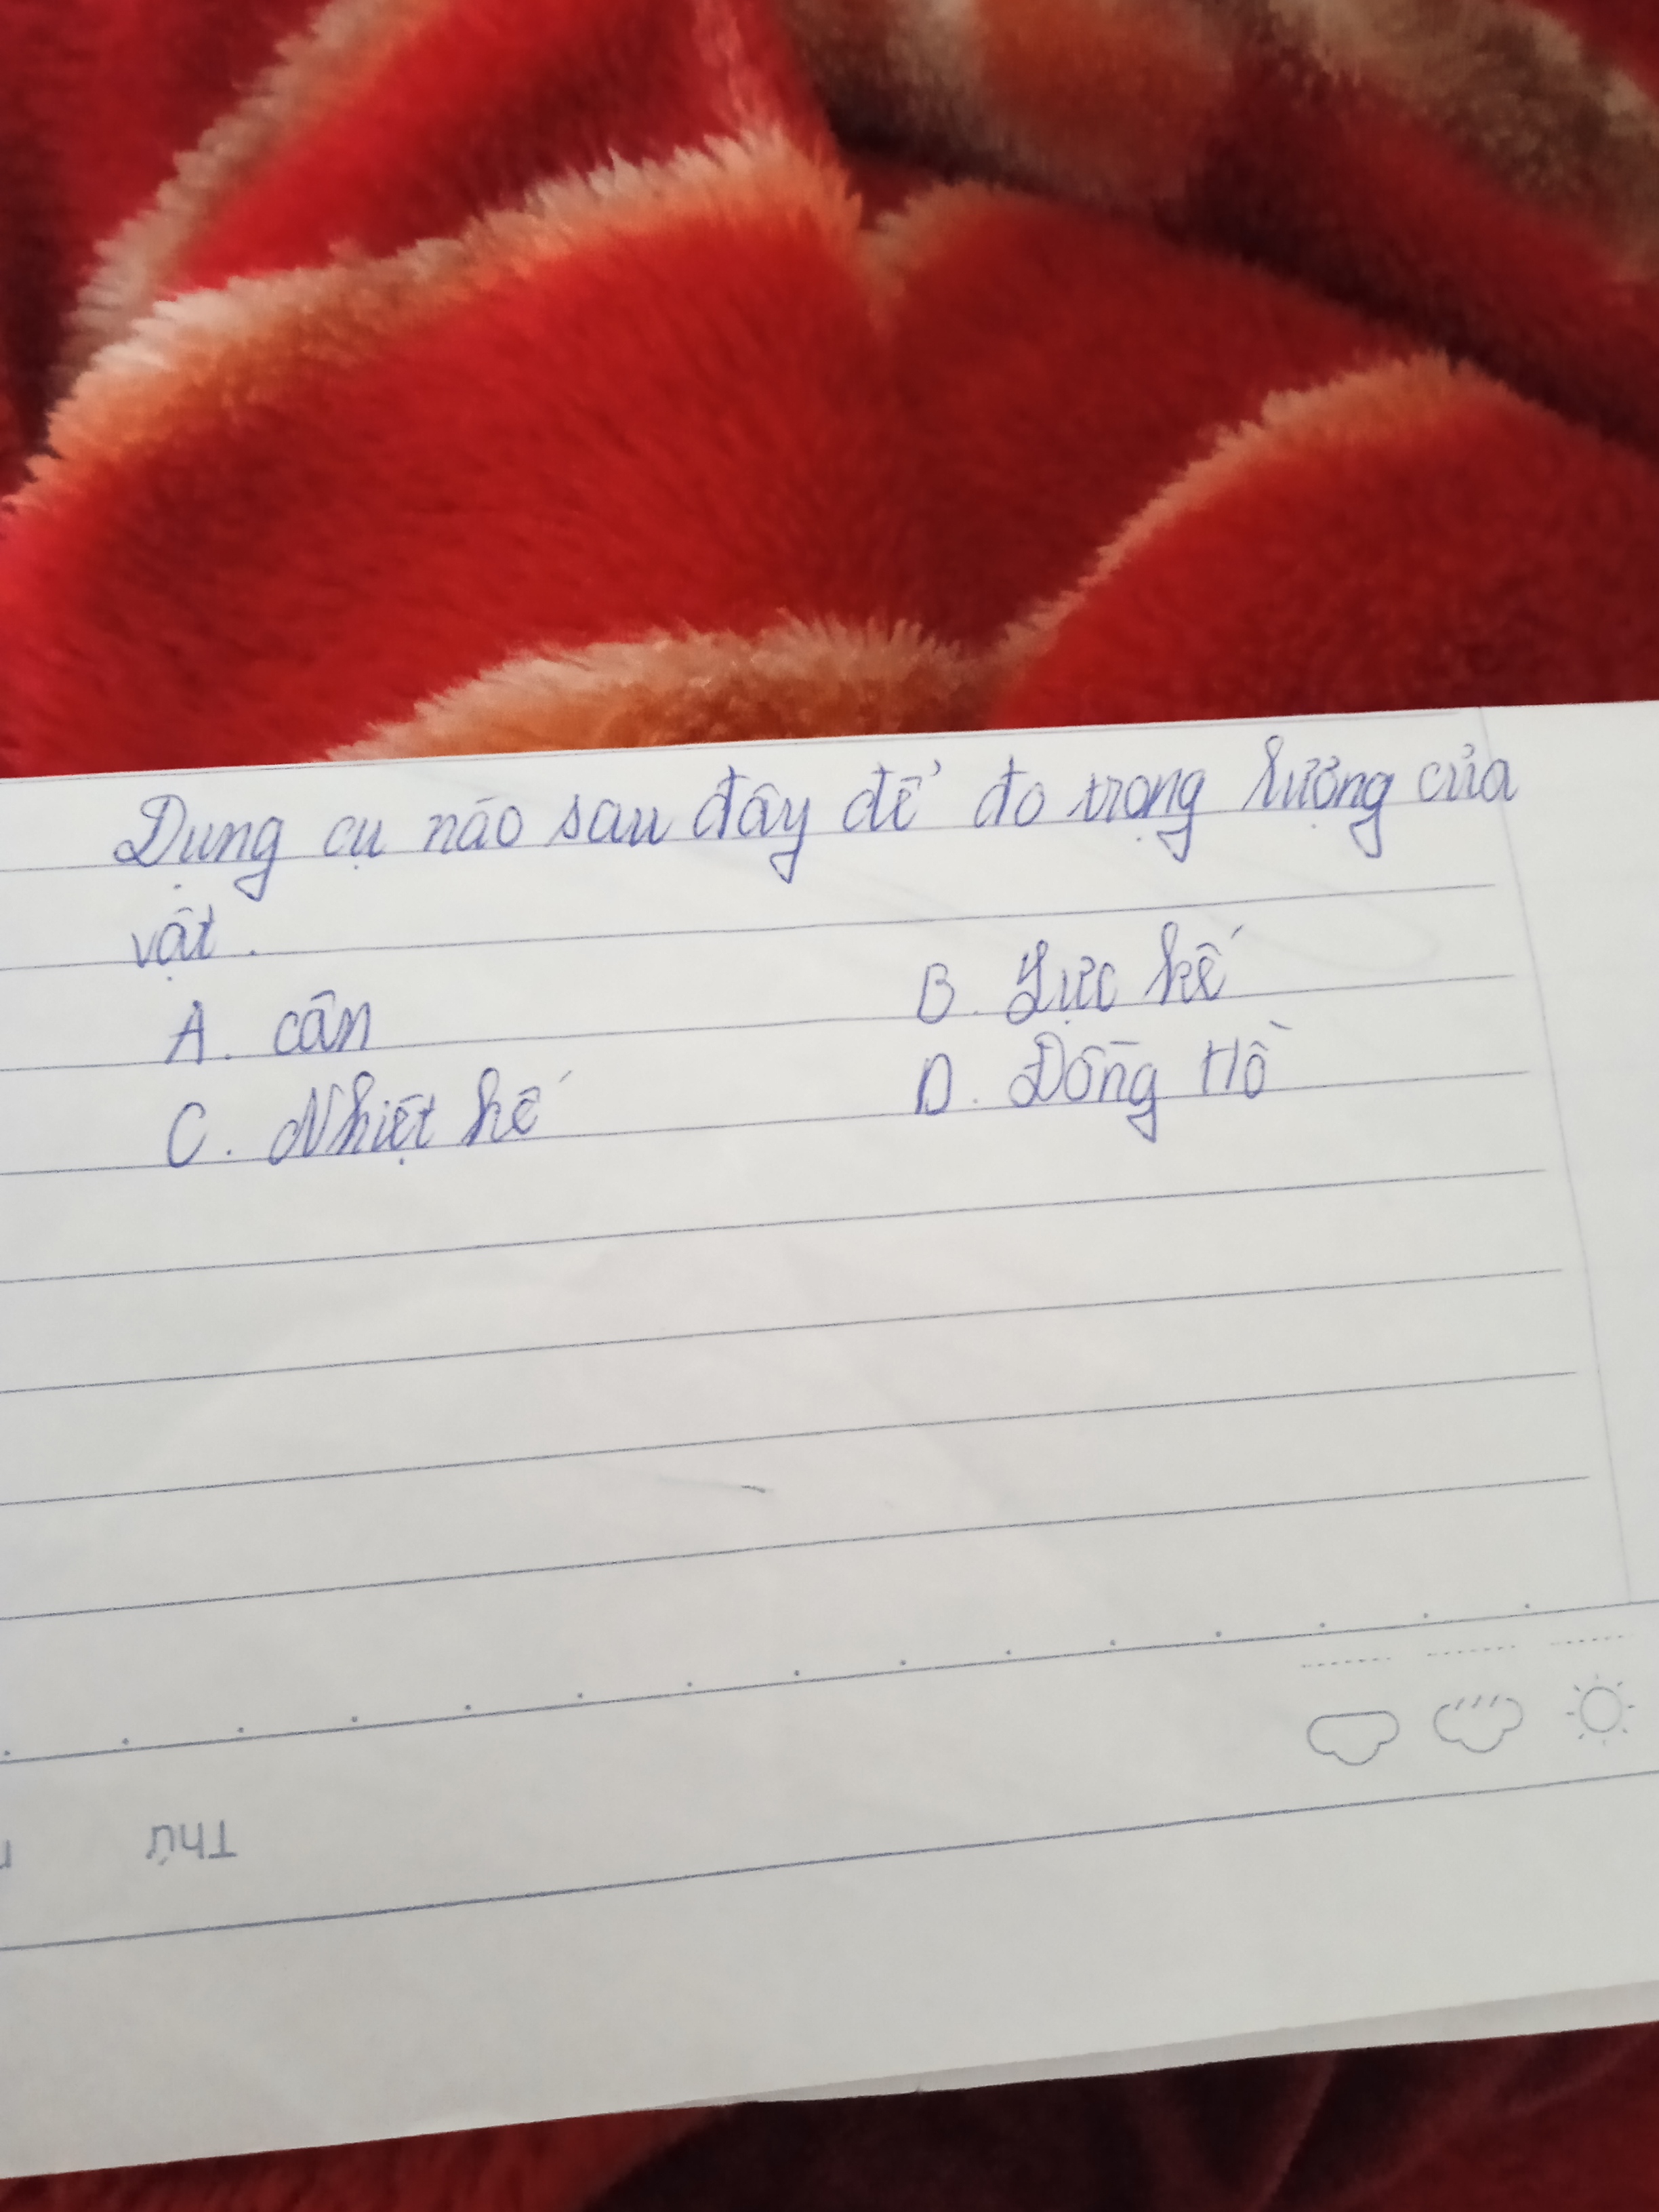 Dụng cụ nào sau đây để đo trọng lượng của
vật.
A. cân
B. Lực kế
C. Nhiệt kế
D. Đồng Hồ
Thứ